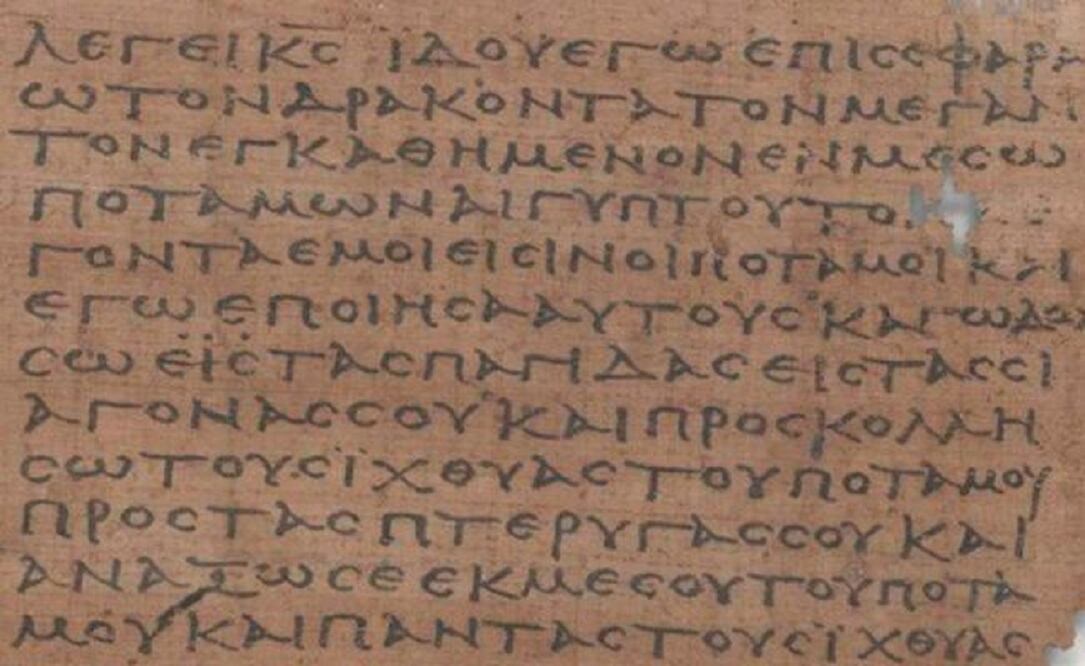 ΛΕΓΕΙ Κ̅Ϲ̅ ΪΔΟΥ ΕΓΩ ΕΠΙ ϹΕ ΦΑΡΑ
Ω ΤΟΝ ΔΡΑΚΟΝΤΑ ΤΟΝ ΜΕΓΑΝ
ΤΟΝ ΕΓΚΑΘΗΜΕΝΟΝ ΕΝ ΜΕϹΩ
ΠΟΤΑΜΩΝ ΑΙΓΥΠΤΟΥ ΤΟ
ΓΟΝΤΑ ΕΜΟΙ ΕΙϹΙΝ ΟΙ ΠΟΤΑΜΟΙ ΚΑΙ
ΕΓΩ ΕΠΟΙΗϹΑ ΑΥΤΟΥϹ ΚΑΓΩ ΔΩ
ϹΩ ΕΙϹ ΤΑϹ ΠΑΓΙΔΑϹ ΕΙϹ ΤΑϹ ϹΙ
ΑΓΟΝΑϹ ϹΟΥ ΚΑΙ ΠΡΟϹΚΟΛΛΗ
ϹΩ ΤΟΥϹ ΪΧΘΥΑϹ ΤΟΥ ΠΟΤΑΜΟΥ
ΠΡΟϹ ΤΑϹ ΠΤΕΡΥΓΑϹ ϹΟΥ ΚΑΙ
ΑΝΑΞΩ ϹΕ ΕΚ ΜΕϹΟΥ ΤΟΥ ΠΟΤΑ
ΜΟΥ ΚΑΙ ΠΑΝΤΑϹ ΤΟΥϹ ΪΧΘΥΑϹ